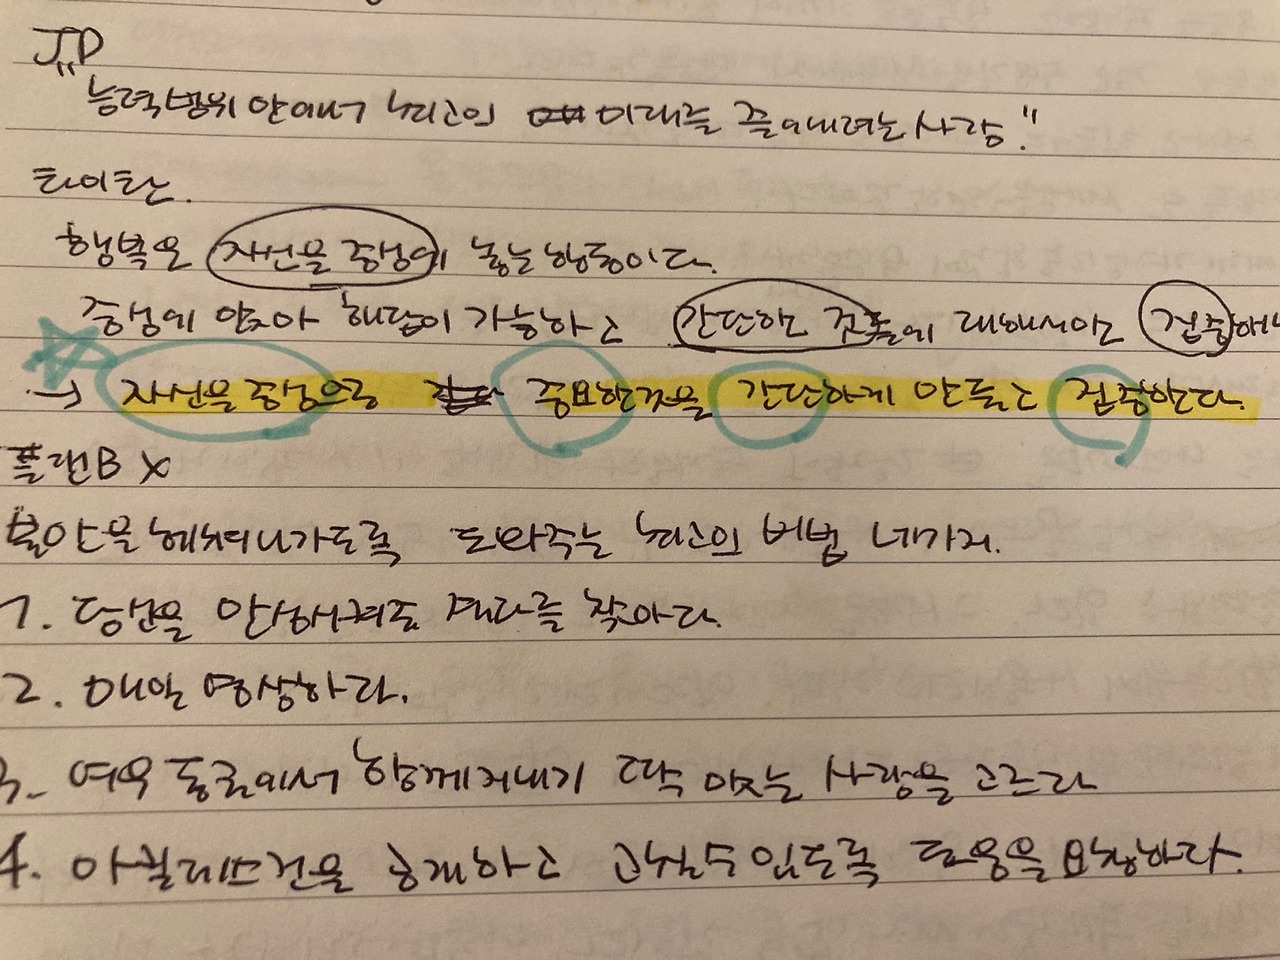 JJD
"능력범위 안에서 최고의 미래를 끌어내려는 사람."
타이탄.
행복은 자신을 중심에 놓는 행동이다.
중심에 앉아 해답이 가능하고 간단한 것들에 대해서만 집중해
→ 자신을 중심으로 중요한것을 간단하게 만들고 집중한다.
플랜B X
불안을 헤쳐나가도록 도와주는 최고의 방법 네가지.
1. 당신을 안심시켜줄 멘토를 찾아라.
2. 매일 명상하라.
3. 여우 동굴에서 함께지내기 딱 맞는 사람을 고르라
4. 아킬레스건을 공개하고 고칠수있도록 도움을 요청하라.